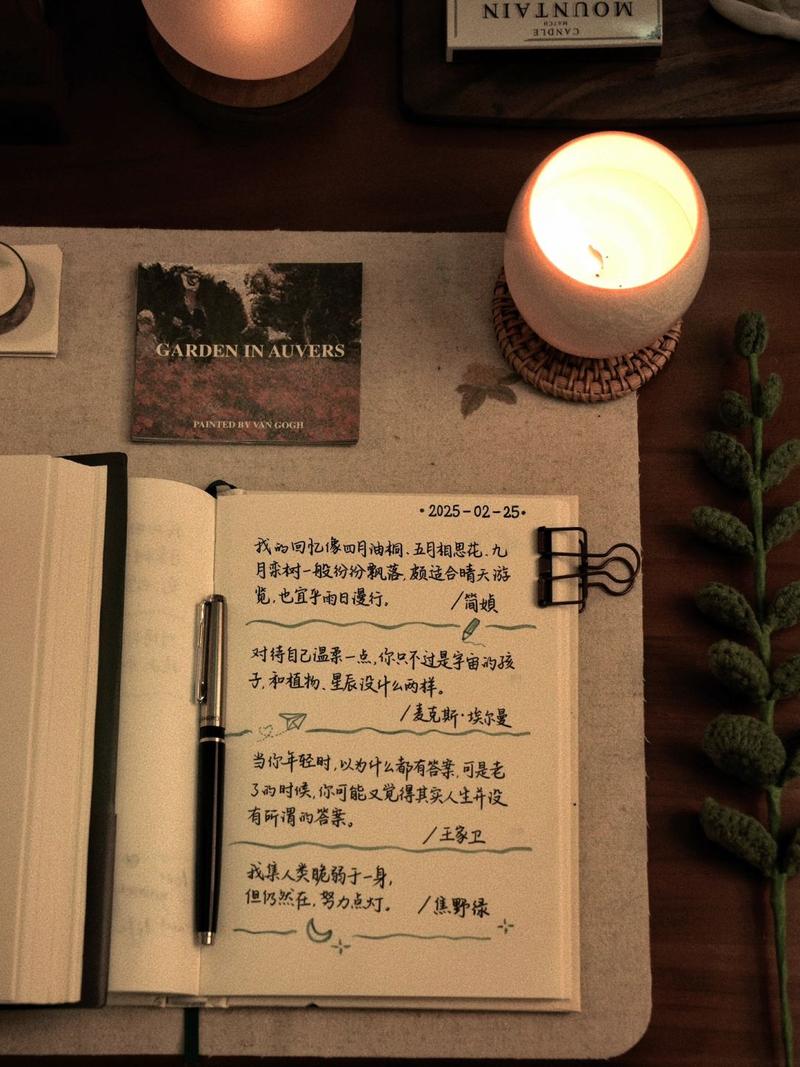 MOUNTAIN
MATCH
CANDLE
GARDEN IN AUVERS
PAINTED BY VAN GOGH
•2025-02-25•
我的回忆像四月油桐、五月相思花、九
月栾树一般纷纷飘落,颇适合晴天游
览,也宜乎雨日漫行。 /简媜
对待自己温柔一点,你只不过是宇宙的孩
子,和植物、星辰没什么两样。
/麦克斯·埃尔曼
当你年轻时,以为什么都有答案,可是老
了的时候,你可能又觉得其实人生并没
有所谓的答案。
/王家卫
我集人类脆弱于一身,
但仍然在,努力点灯。 /焦野绿